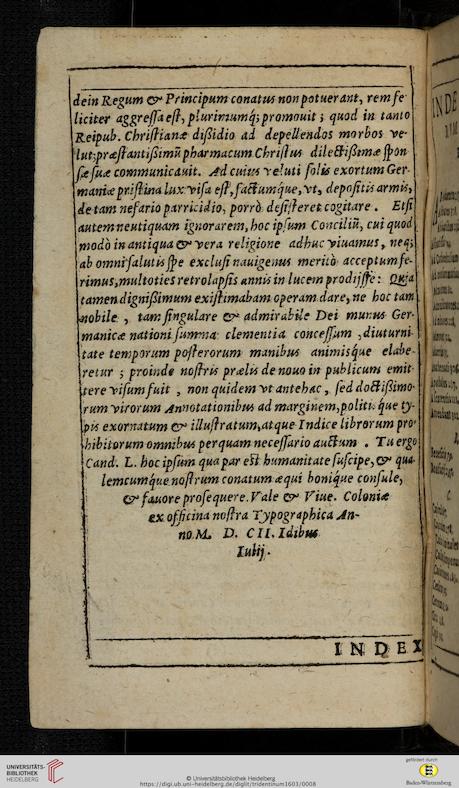 dein Regum & Principum conatus non potuerant, rem fe
liciter aggressa est, plurimumq; promouit ; quod in tanto
Reipub. Christianæ dißidio ad depellendos morbos ve-
lut præstantißimũ pharmacum Christus dilectißimæ spon
sæ suæ communicauit. Ad cuius veluti solis exortum Ger-
maniæ pristina lux visa est, factumque, vt, depositis armis,
de tam nefario parricidio, porrò desisteret cogitare. Etsi
autem neutiquam ignorarem, hoc ipsum Conciliũ, cui quod
modò in antiqua & vera religione adhuc viuamus, neq;
ab omni salutis spe exclusi nauigemus meritò acceptum fe-
rimus, multoties retrolapsis annis in lucem prodijsse: Quia
tamen dignißimum existimabam operam dare, ne hoc tam
nobile , tam singulare & admirabile Dei munus Ger-
manicæ nationi summa clementia concessum , diuturni
tate temporum posterorum manibus animisque elabe-
retur ; proinde nostris prælis de nouo in publicum emit-
tere visum fuit , non quidem vt antehac, sed doctißimo-
rum virorum Annotationibus ad marginem, politisque ty-
pis exornatum & illustratum, atque Indice librorum pro
hibitorum omnibus perquam necessario auctum . Tu ergo
Cand. L. hoc ipsum qua par est humanitate suscipe, & qua-
lemcumque nostrum conatum æqui bonique consule,
& fauore prosequere. Vale & Viue. Coloniæ
ex officina nostra Typographica An-
no. M. D. CII. Idibus
Iulij.
INDEX
UNIVERSITÄTS-
BIBLIOTHEK
HEIDELBERG
© Universitätsbibliothek Heidelberg
https://digi.ub.uni-heidelberg.de/diglit/tridentinum1603/0008
gefördert durch
Baden-Württemberg